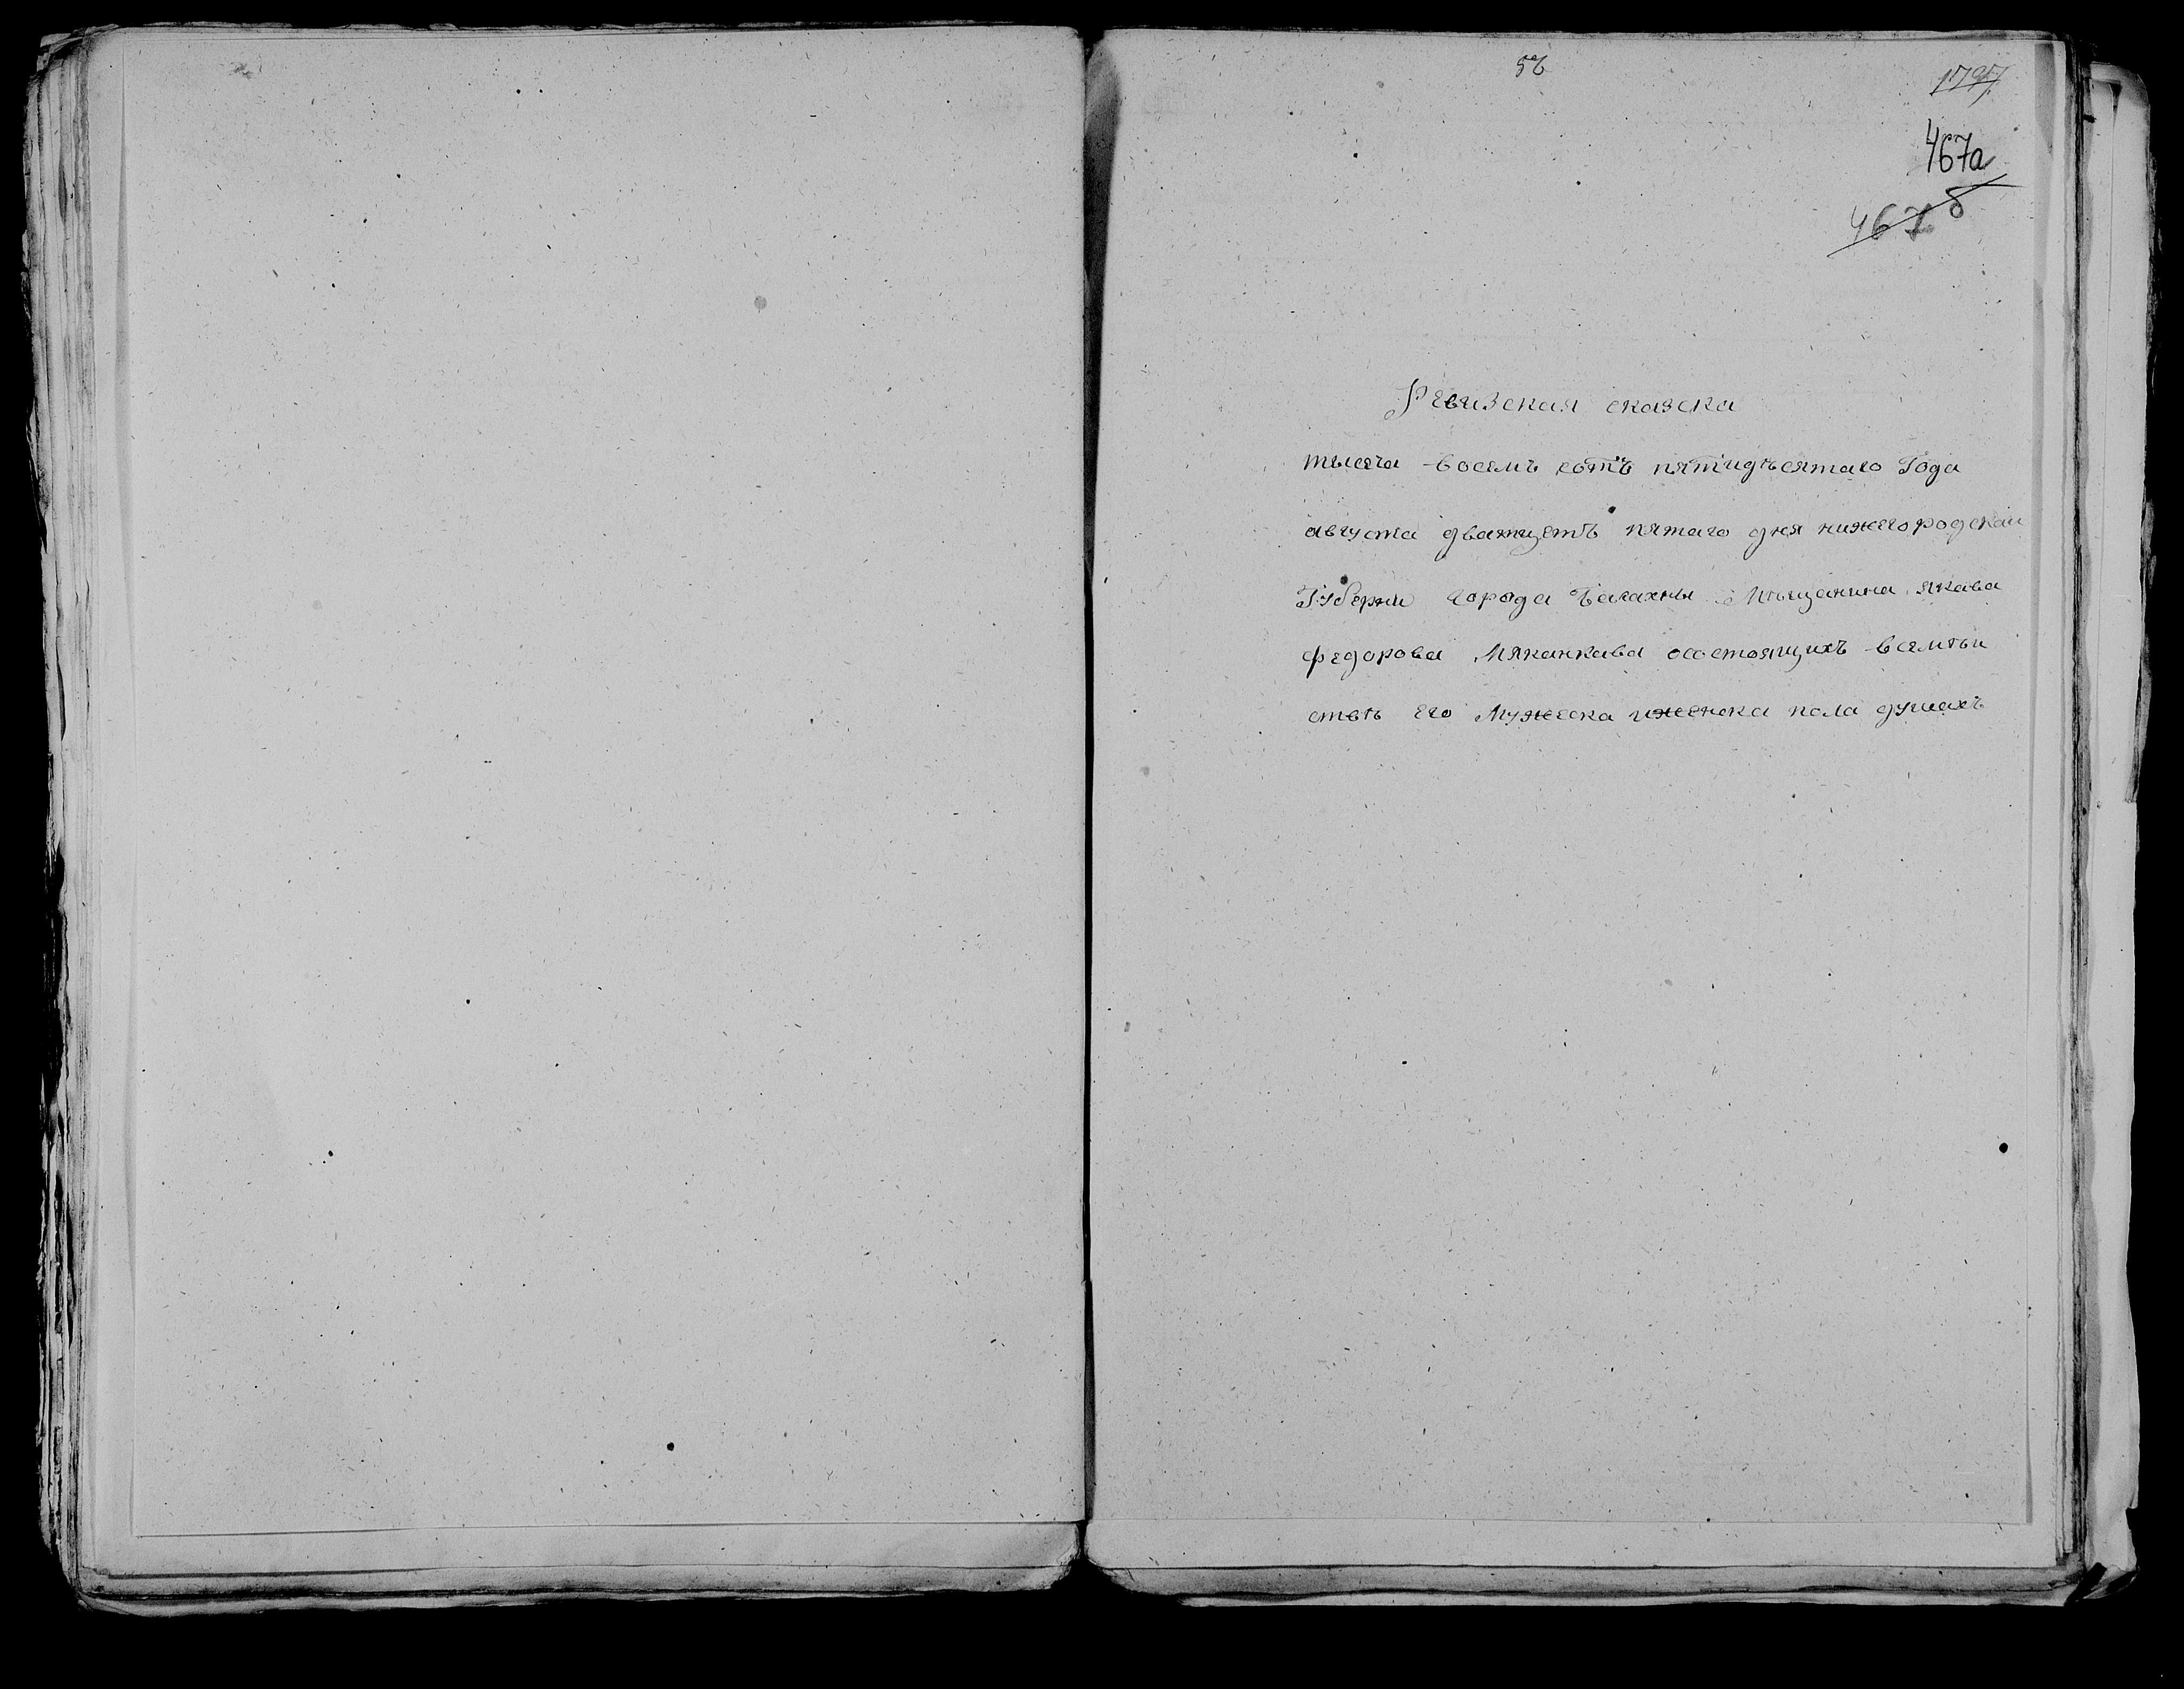 467а
467б
Ревизская сказска
тысеча восемъ сотъ пятидѣсятаго Года
августа дватцеть пятаго дня нижегородскаи
Губерни города Балахны Мѣщанина якава
федорова Мяканкава осостоящихъ всемѣи
ствѣ его Мужеска иженска пола душахъ